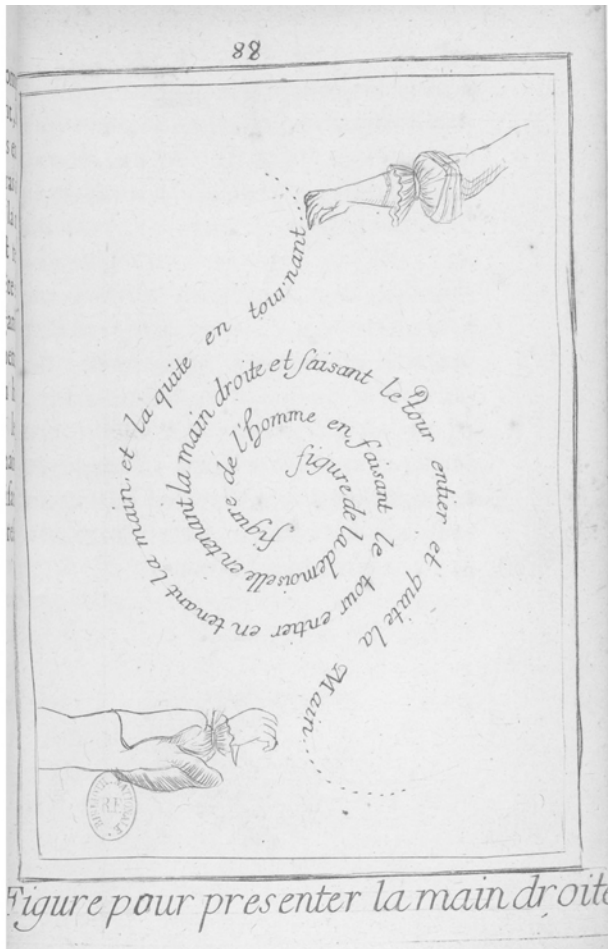 88
figure de l'homme en faisant le tour entier en tenant la main et la quite en tour:nant...
figure de la demoiselle en tenant la main droite et faisant le tour entier et quite la Main...
RF
Figure pour presenter la main droite